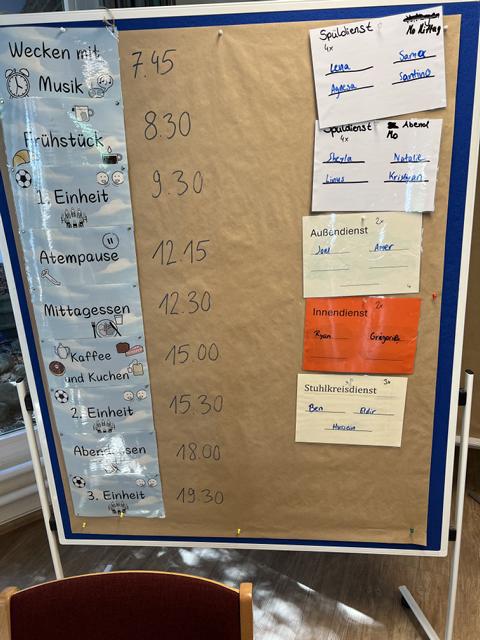 Wecken mit
Musik
7.45
Frühstück
8.30
1. Einheit
9.30
Atempause
12.15
Mittagessen
12.30
Kaffee
und Kuchen
15.00
2. Einheit
15.30
Abendessen
18.00
3. Einheit
19.30
Spüldienst
Mo Mittag
4x
Lena
Samer
Agnesa
Santino
Spüldienst Abend
Mo
4x
Natalie
Linus
Kristijan
Außendienst
2x
Joel
Amer
Innendienst
2x
Ryan
Stuhlkreisdienst
3x
Ben
Eldir
Hussein